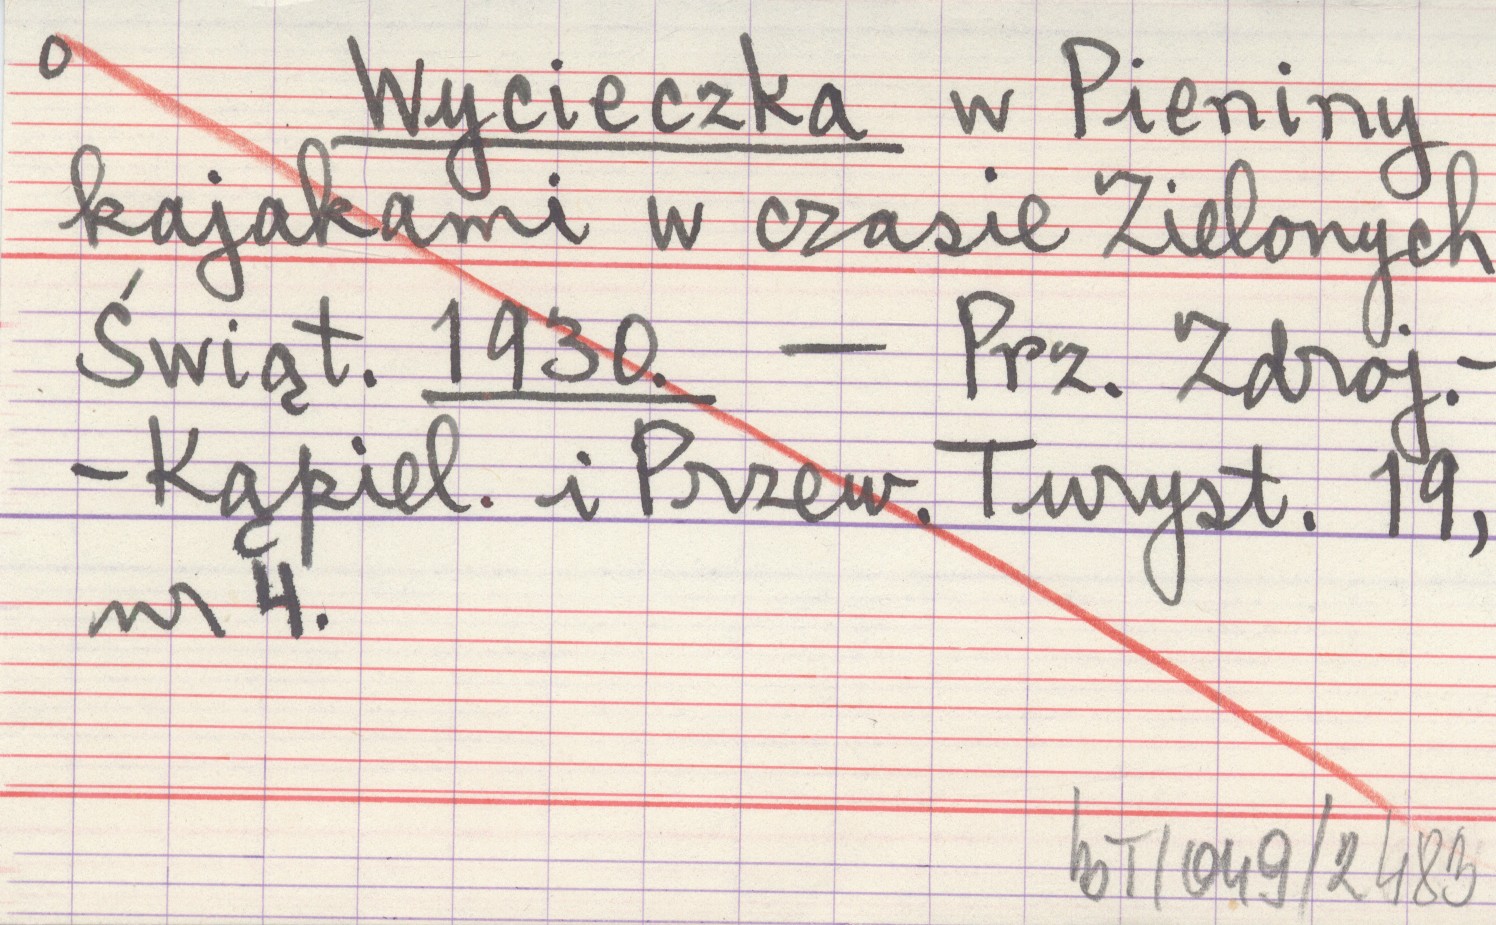 o Wycieczka w Pieniny
kajakami w czasie Zielonych
Świąt. 1930. — Prz. Zdroj.-
-Kąpiel. i Przew. Turyst. 19,
nr 4.
bT/049/2483